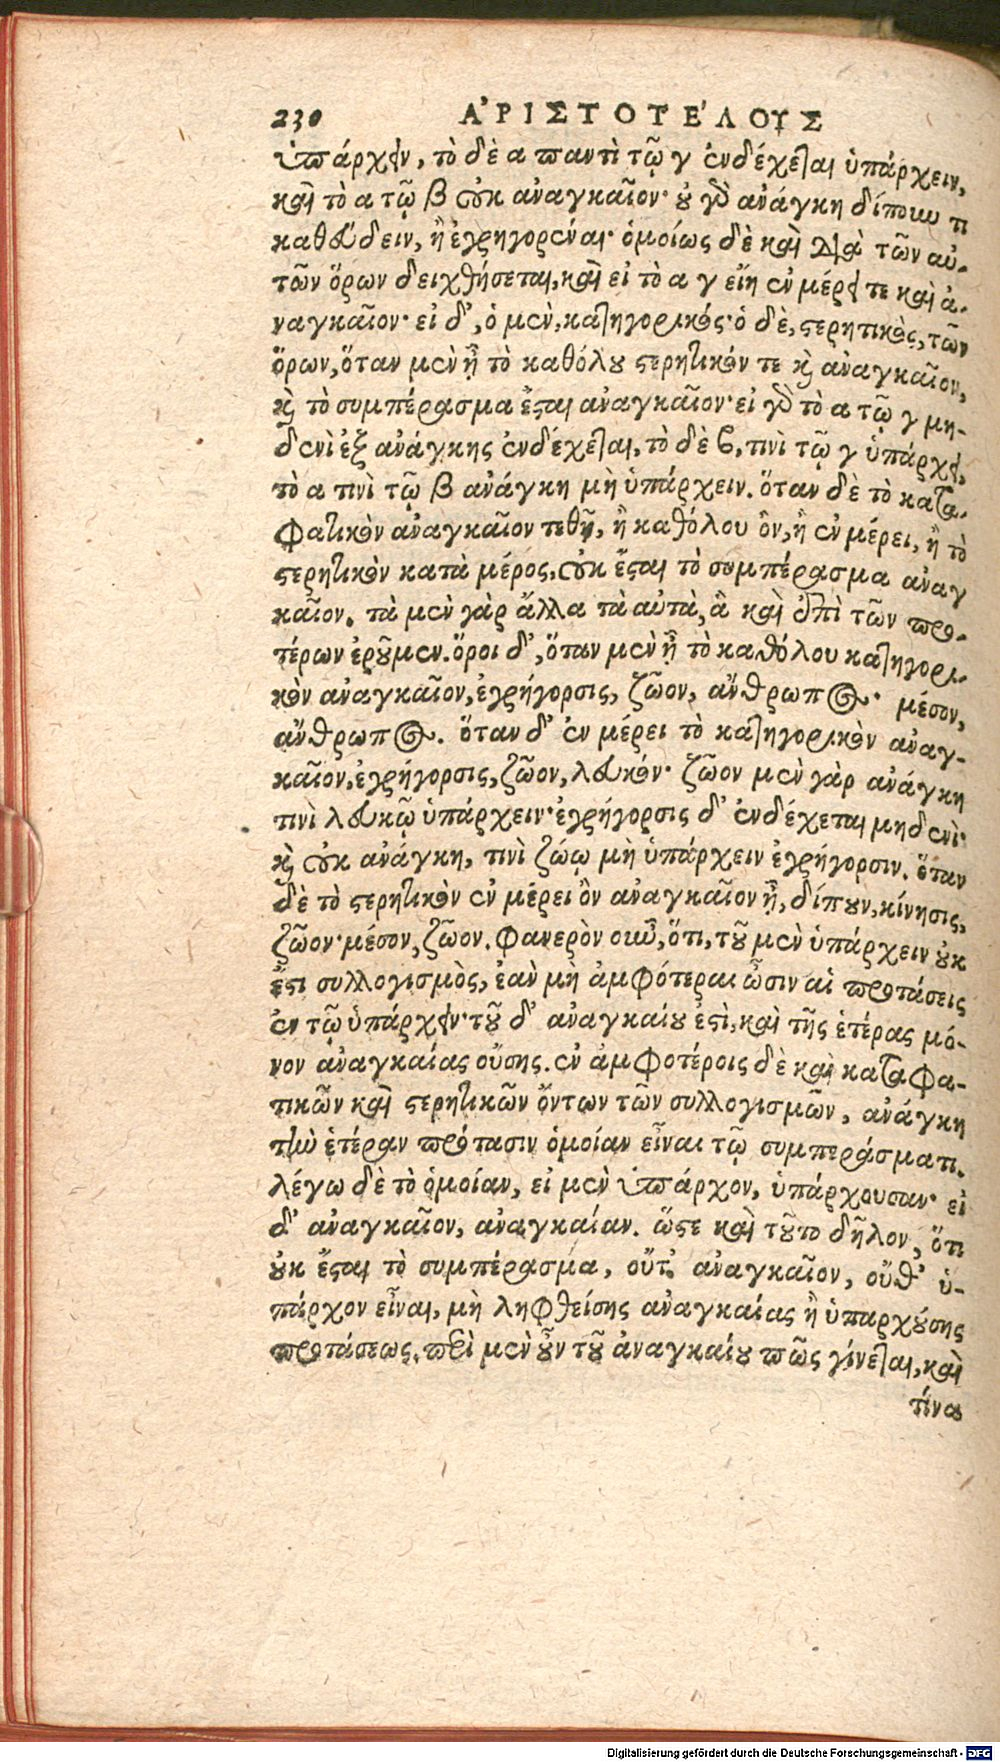 230 ἈΡΙΣΤΟΤΈΛΟΥΣ
ὑπάρχειν, τὸ δὲ α παντὶ τῷ γ ἐνδέχεται ὑπάρχειν,
καὶ τὸ α τῷ β οὐκ ἀναγκαῖον· οὐ γὰρ ἀνάγκη δίπουν τι
καθεύδειν, ἢ ἐγρηγορέναι· ὁμοίως δὲ καὶ διὰ τῶν αὐ-
τῶν ὅρων δειχθήσεται, καὶ εἰ τὸ α γ εἴη ἐν μέρει τε καὶ ἀ-
ναγκαῖον· εἰ δ', ὁ μὲν, κατηγορικός· ὁ δὲ, στερητικὸς, τῶν
ὅρων, ὅταν μὲν ᾖ τὸ καθόλου στερητικόν τε καὶ ἀναγκαῖον,
καὶ τὸ συμπέρασμα ἔσται ἀναγκαῖον· εἰ γὰρ τὸ α τῷ γ μη-
δενὶ ἐξ ἀνάγκης ἐνδέχεται, τὸ δὲ β, τινὶ τῷ γ ὑπάρχει,
τὸ α τινὶ τῷ β ἀνάγκη μὴ ὑπάρχειν. ὅταν δὲ τὸ κατα-
φατικὸν ἀναγκαῖον τεθῇ, ἢ καθόλου ὂν, ἢ ἐν μέρει, ἢ τὸ
στερητικὸν κατὰ μέρος, οὐκ ἔσται τὸ συμπέρασμα ἀναγ
καῖον. τὰ μὲν γὰρ ἄλλα τὰ αὐτὰ, ἃ καὶ ἐπὶ τῶν προ-
τέρων ἐροῦμεν. ὅροι δ', ὅταν μὲν ᾖ τὸ καθόλου κατηγορι-
κὸν ἀναγκαῖον, ἐγρήγορσις, ζῶον, ἄνθρωπος· μέσον,
ἄνθρωπος. ὅταν δ' ἐν μέρει τὸ κατηγορικὸν ἀναγ-
καῖον, ἐγρήγορσις, ζῶον, λευκόν· ζῶον μὲν γὰρ ἀνάγκη
τινὶ λευκῷ ὑπάρχειν· ἐγρήγορσις δ' ἐνδέχεται μηδενὶ·
καὶ οὐκ ἀνάγκη, τινὶ ζώῳ μὴ ὑπάρχειν ἐγρήγορσιν. ὅταν
δὲ τὸ στερητικὸν ἐν μέρει ὂν ἀναγκαῖον ᾖ, δίπουν, κίνησις,
ζῶον· μέσον, ζῶον. φανερὸν οὖν, ὅτι, τοῦ μὲν ὑπάρχειν οὐκ
ἔστι συλλογισμὸς, ἐὰν μὴ ἀμφότεραι ὦσιν αἱ προτάσεις
ἐν τῷ ὑπάρχειν· τοῦ δ' ἀναγκαίου ἐστὶ, καὶ τῆς ἑτέρας μό-
νον ἀναγκαίας οὔσης. ἐν ἀμφοτέροις δὲ καὶ καταφα-
τικῶν καὶ στερητικῶν ὄντων τῶν συλλογισμῶν, ἀνάγκη
τὴν ἑτέραν πρότασιν ὁμοίαν εἶναι τῷ συμπεράσματι.
λέγω δὲ τὸ ὁμοίαν, εἰ μὲν ὑπάρχον, ὑπάρχουσαν· εἰ
δ' ἀναγκαῖον, ἀναγκαίαν. ὥστε καὶ τοῦτο δῆλον, ὅτι
οὐκ ἔσται τὸ συμπέρασμα, οὔτ' ἀναγκαῖον, οὔθ' ὑ-
πάρχον εἶναι, μὴ ληφθείσης ἀναγκαίας ἢ ὑπαρχούσης
προτάσεως. περὶ μὲν οὖν τοῦ ἀναγκαίου πῶς γίνεται, καὶ
τίνα
Digitalisierung gefördert durch die Deutsche Forschungsgemeinschaft - DFG